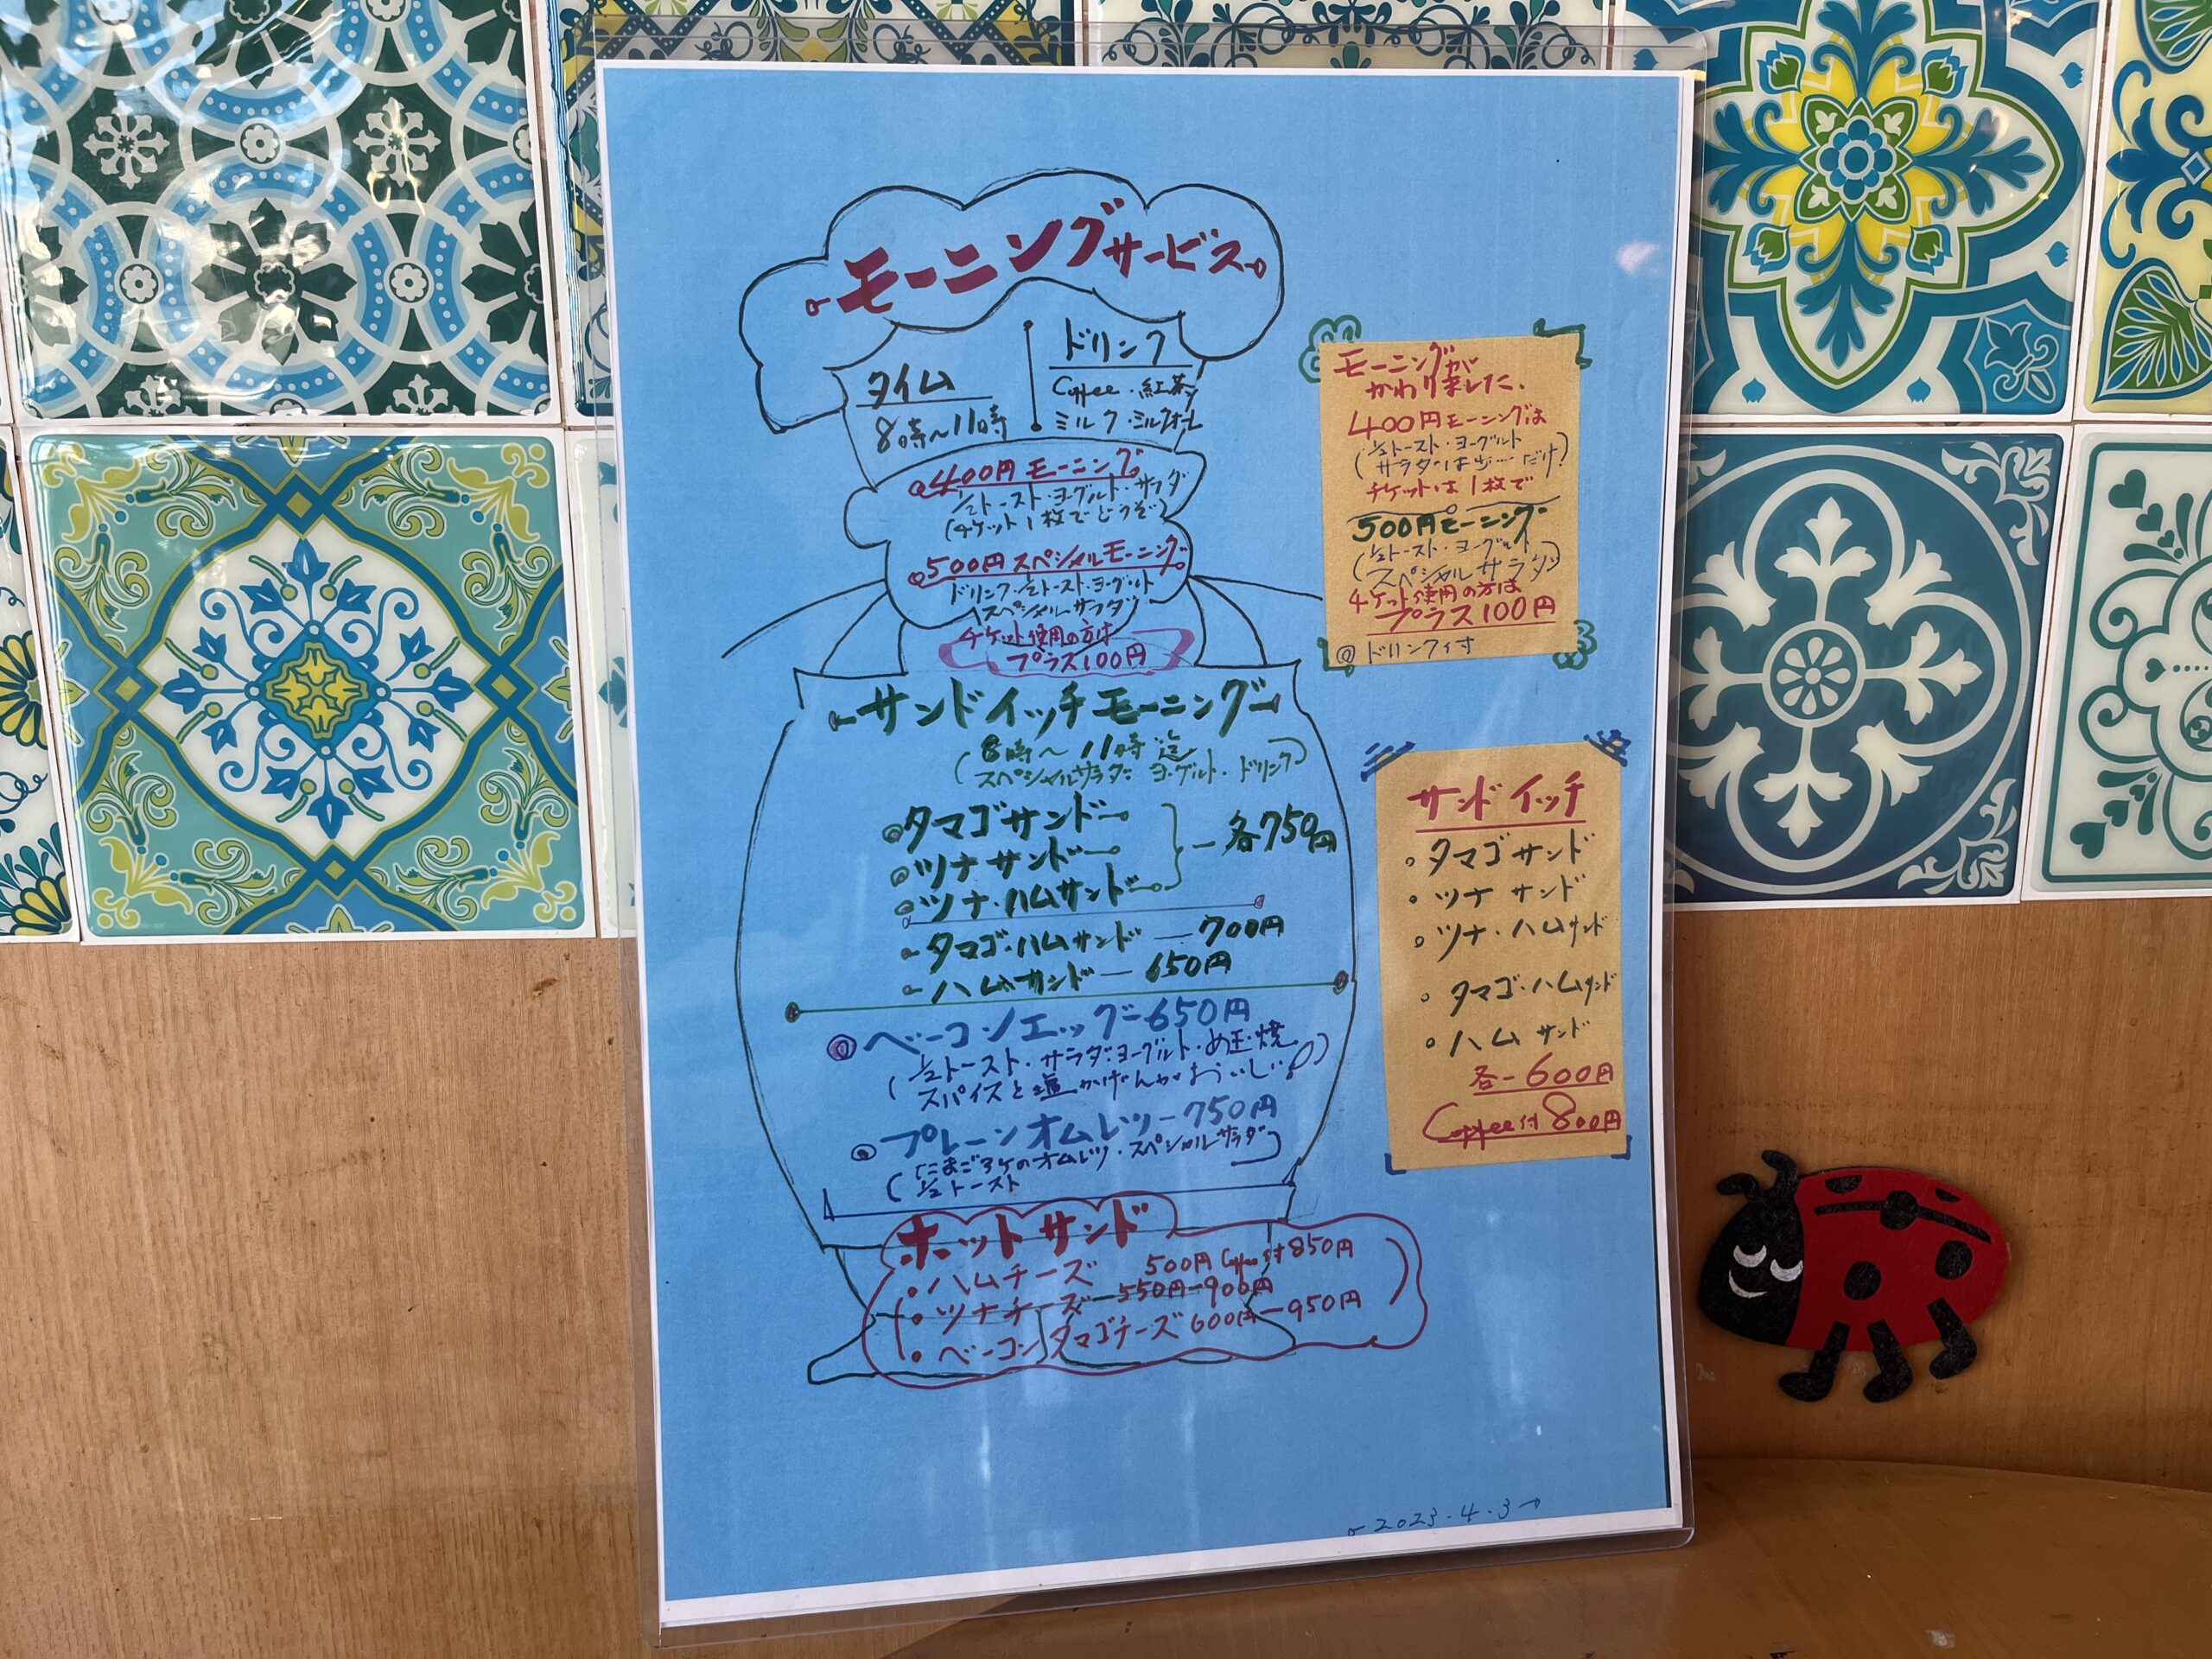 モーニングサービス
タイム
8時〜11時
ドリンク
Coffee・紅茶
ミルク・ミルクオーレ
400円モーニング
½トースト・ヨーグルト・サラダ
(チケット1枚でどうぞ)
500円スペシャルモーニング
ドリンク・½トースト・ヨーグルト
スペシャルサラダ
チケット使用の方は
プラス100円
サンドイッチモーニング
(8時〜11時迄
スペシャルサラダ・ヨーグルト・ドリンク)
タマゴサンド
ツナサンド
ツナ・ハムサンド
各750円
タマゴ・ハムサンド―700円
ハムサンド―650円
◎ベーコンエッグ―650円
(½トースト・サラダ・ヨーグルト・め玉焼
スパイスと塩かげんがおいしい)
◎プレーンオムレツ―750円
(たまご3ケのオムレツ・スペシャルサラダ
½トースト
ホットサンド
・ハムチーズ 500円 Coffee付850円
・ツナチーズ―550円―900円
・ベーコンタマゴチーズ600円―950円
モーニングが
かわりました.
400円モーニングは
(½トースト・ヨーグルト
サラダは少―だけ)
チケットは1枚で
500円モーニング
(½トースト・ヨーグルト
スペシャルサラダ)
チケット使用の方は
プラス100円
◎ドリンク付
サンドイッチ
・タマゴサンド
・ツナサンド
・ツナ・ハムサンド
・タマゴ・ハムサンド
・ハムサンド
各―600円
Coffee付800円
2023.4.3→